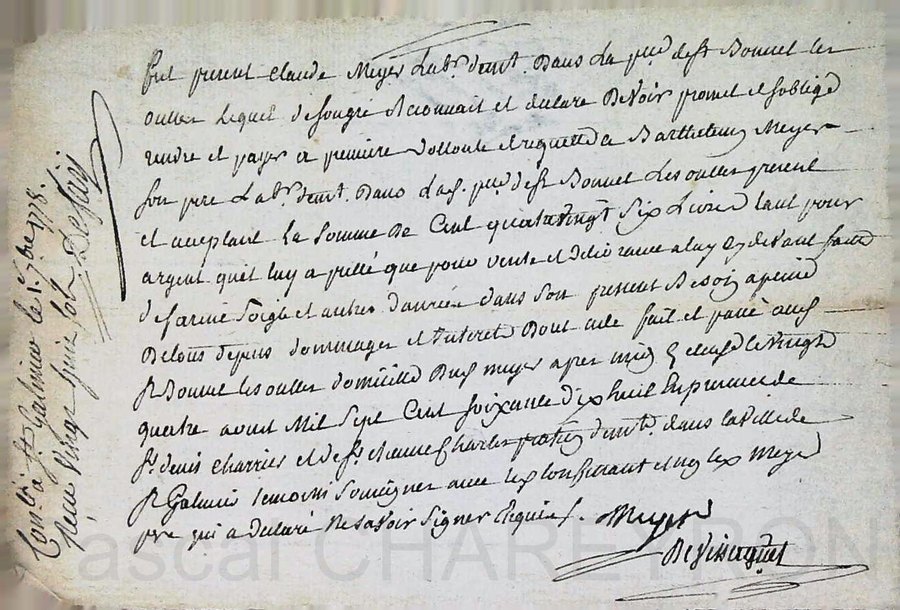 fut present Claude Meyer Lab.r dem.t Dans La p.sse de st Bonnet les
oulles Lequel de son gré Reconnait et declare Devoir promet et soblige
rendre et payer a premiere volonté et requette a Barthelemy Meyer
son pere Lab.r dem.t Dans lad. p.sse de st Bonnet Les oulles present
et acceptant La Somme De Cent quatrevingt Six Livres tant pour
argent quil luy a pretté que pour vente et delivrance a luy cy devant faitte
de farine Soigle et autres danrées dans son present Besoin a peine
De tous depens dommages et Interets Dont acte fait et passé aud.
St Bonnet les oulles domicille Dud. meyer apres midy Le vingt
quatre aoust Mil Sept Cent Soixante dix huit En presence de
Sr denis Charrier et de Sr Charles dem.t dans la ville de
St Galmier temoins Soussignes avec Lex et non Lex Meyer
pere qui a declaré Ne Savoir Signer Enquis.
Meyer
Devissaguet
Con.lé a St Galmier le 1.r 7bre 1778.
Reçu vingt six sols
ascal CHAREYRON